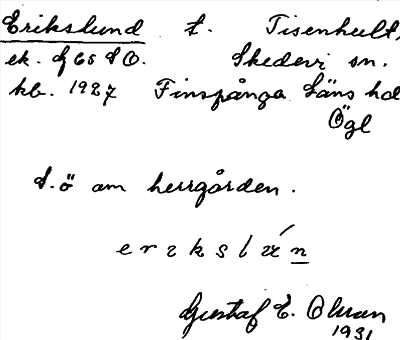 Erikslund t. Tisenhult,
ek. bl 65 SO. Skedevi sn.
kb. 1927 Finspånga Läns hd
Ögl
S. ö om herrgården.
erikslun
Gustaf E. Ohman
1931